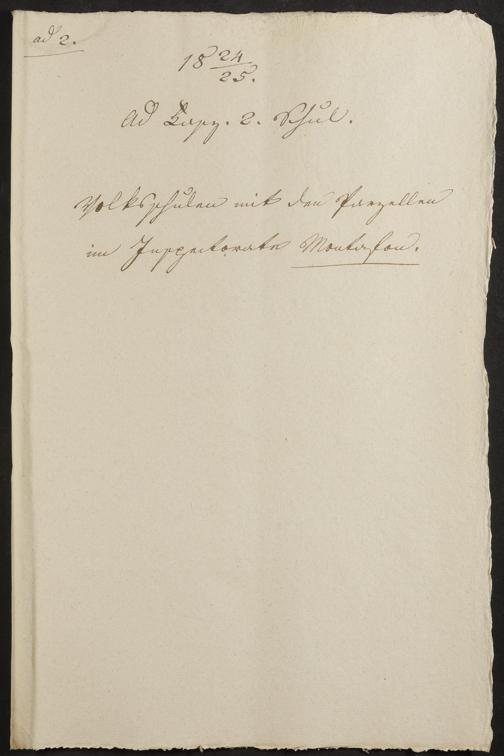 ad 2.
18 24/25.
Ad Kapz. 2. Schul.
Volksschulen mit den Parzellen
im Inspectorate Montafon.